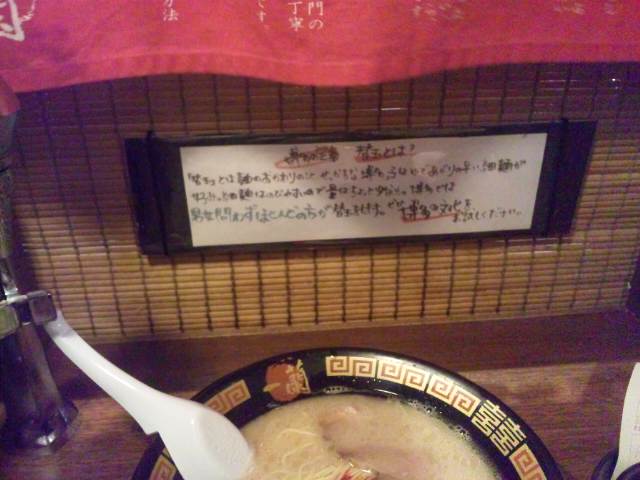 門の
丁寧
です。
方法
替玉とは?
「替玉」とは麺のおかわりのこと せっかちな博多っ子はゆであがりの早い細麺が
細麺はのびやすいので量はちょっと少なめ。博多では
男女問わずほとんどの方が替玉をします。ぜひ博多の文化をお試しください。
一蘭
囍
囍